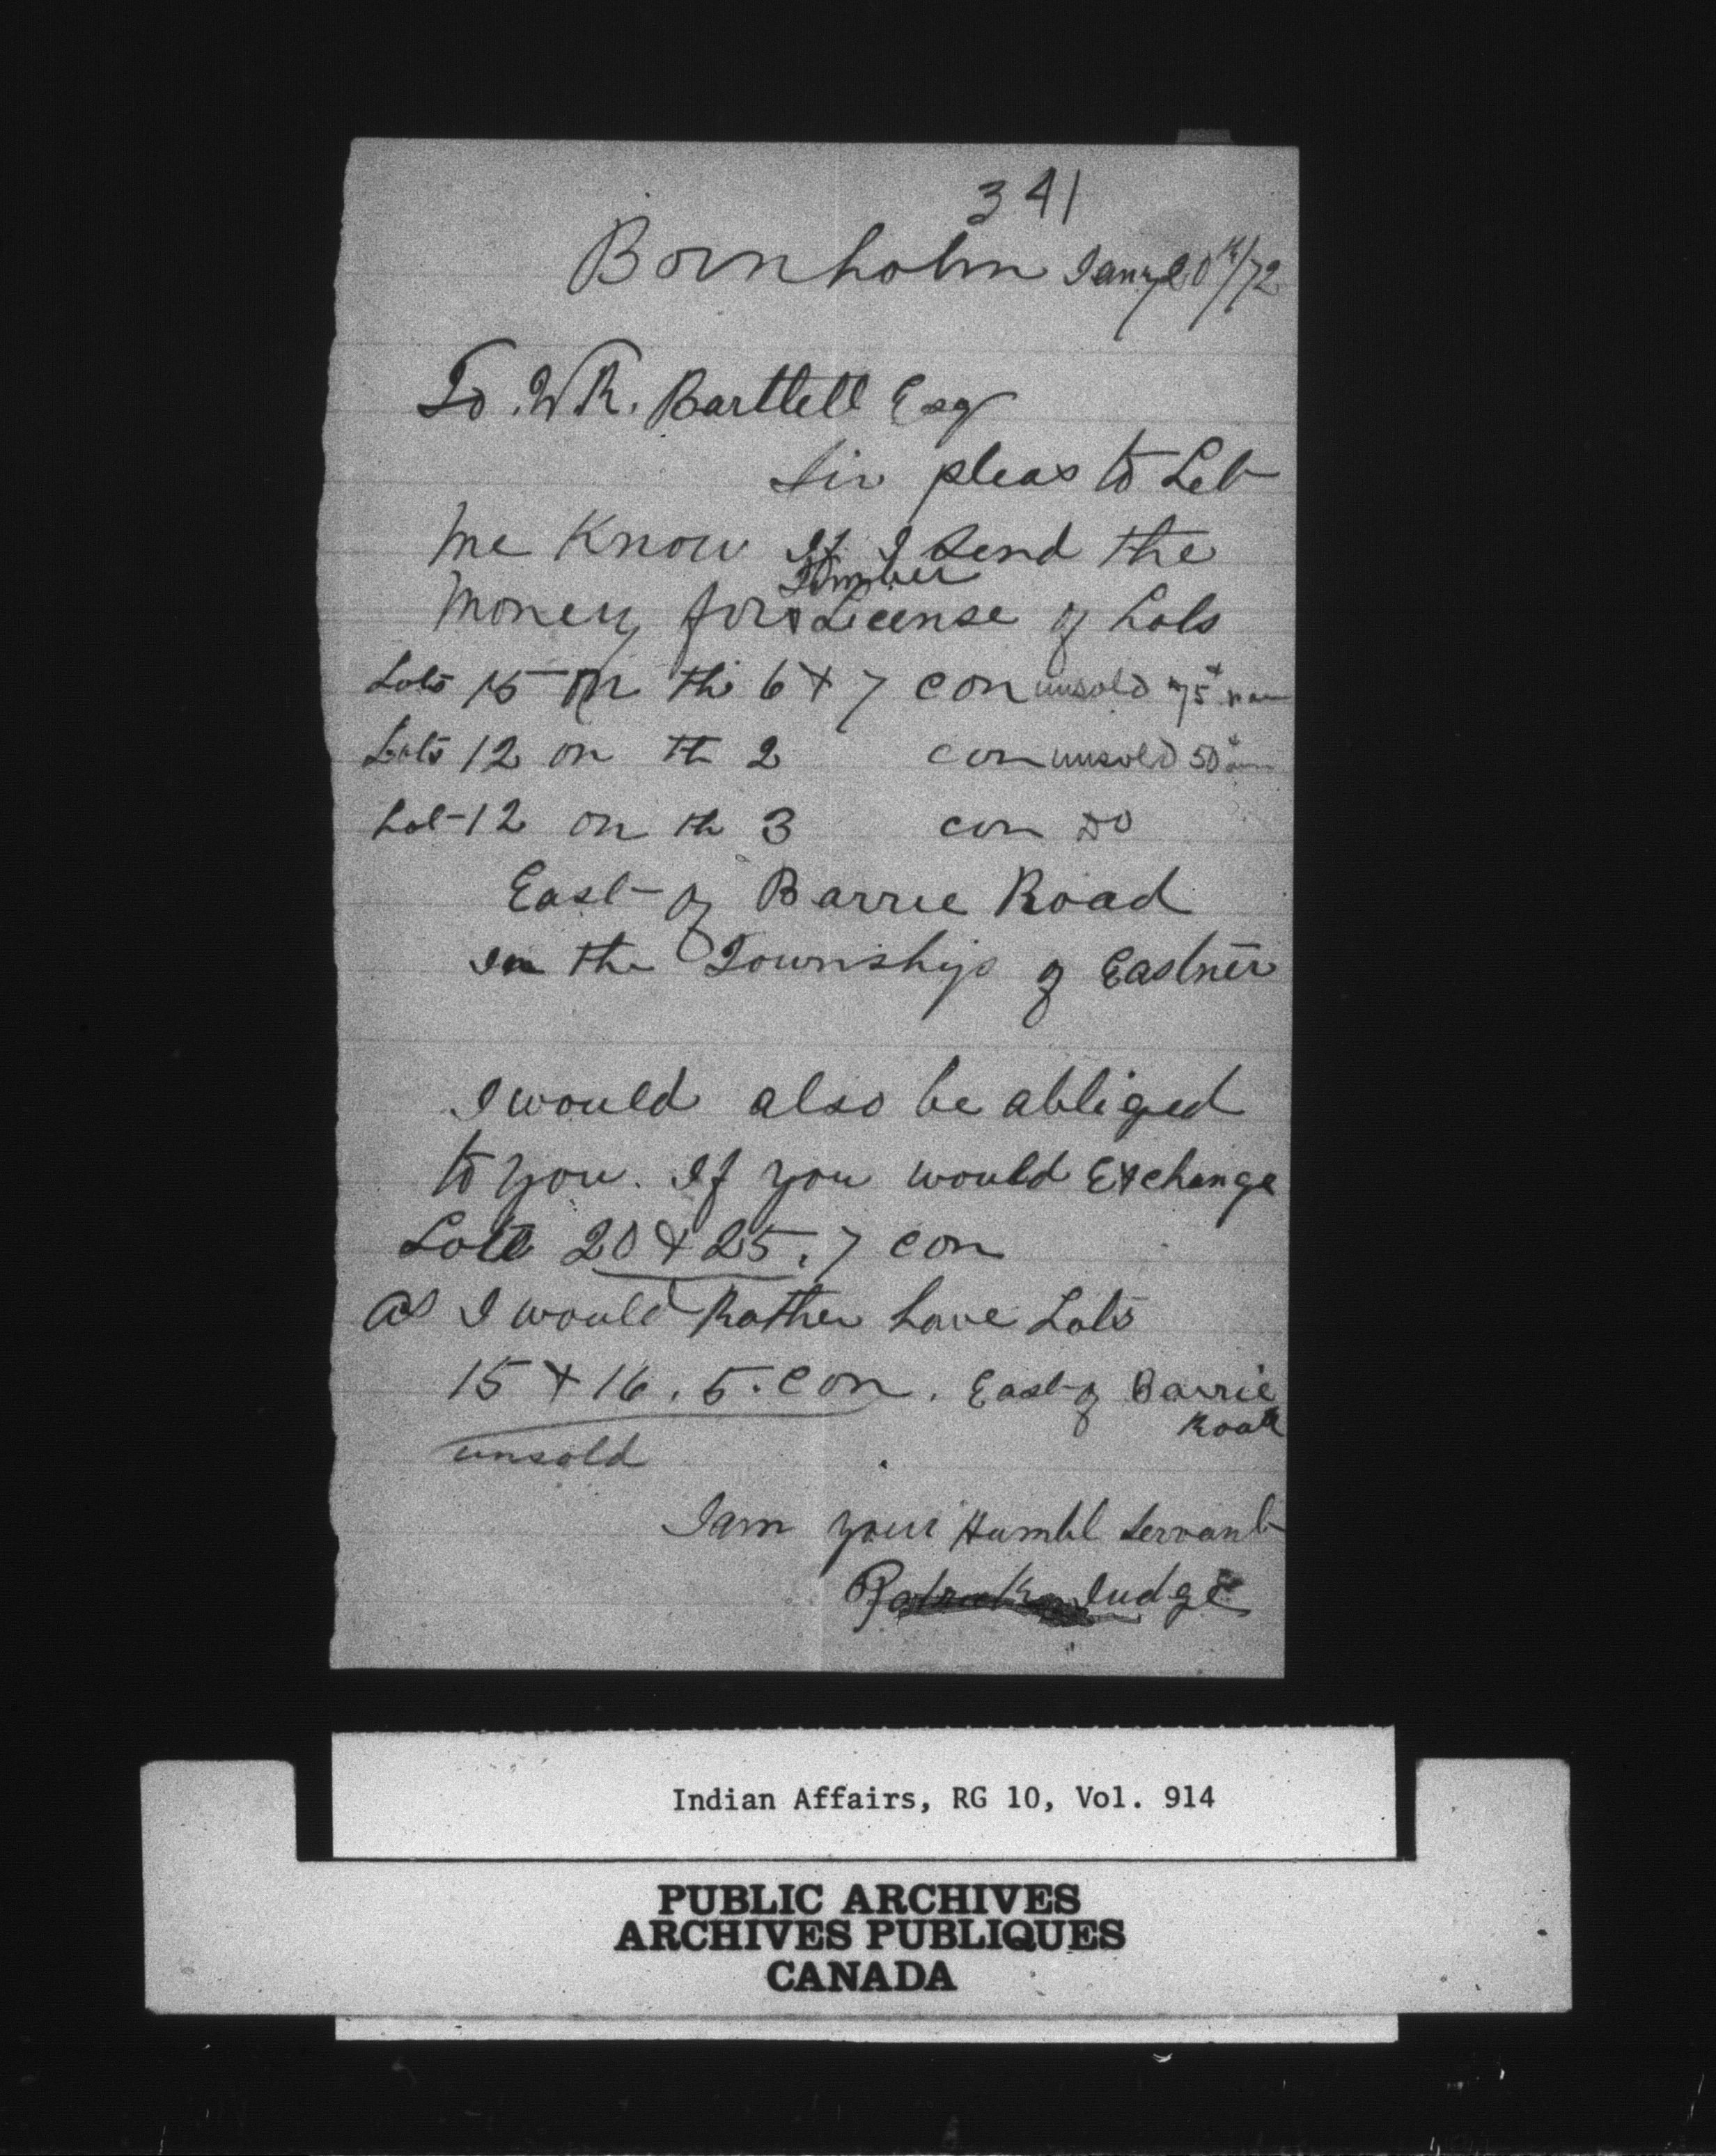 341
Bornholm Jany 20th/72
To. W R. Bartlett Esq
Sir pleas to Let
me Know If I Send the
Timber
Money for License of Lots
Lots 15 on the 6 + 7 con unsold 75
Lots 12 on th 2 con unsold 50
Lot 12 on th 3 con Do
East of Barrie Road
In the Township of Eastner
I would also be abliged
to you. If you would Exchange
Lots 20 & 25. 7 con
as I would Rather have Lots
15 + 16. 5. con. East of Barrie
Road
unsold
I am your Humbl Servant
Patrick Judge
Indian Affairs, RG 10, Vol. 914
PUBLIC ARCHIVES
ARCHIVES PUBLIQUES
CANADA